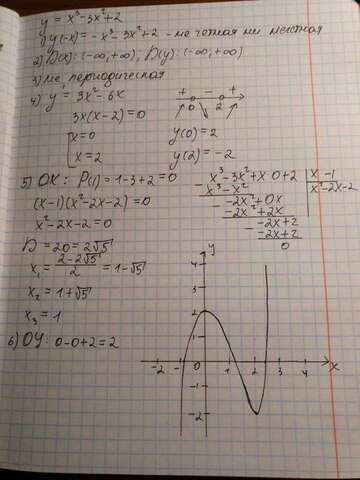 y = x³-3x²+2
1) y(-x) = -x³-3x²+2 - не четная ни нечетная
2) D(x): (-∞,+∞), D(y): (-∞,+∞)
3) не периодическая
4) y' = 3x²-6x
3x(x-2)=0
x=0
x=2
+ - +
0 2
y(0)=2
y(2)=-2
5) OX: P(1)=1-3+2=0
(x-1)(x²-2x-2)=0
x²-2x-2=0
D=20=2√5
x₁=(2-2√5)/2=1-√5
x₂=1+√5
x₃=1
x³-3x²+x·0+2 | x-1
x³-x² | x²-2x-2
-2x²+0x
-2x²+2x
-2x+2
-2x+2
0
6) OY: 0-0+2=2
y
4
3
2
1
-2 -1 0 1 2 3 4 x
-1
-2